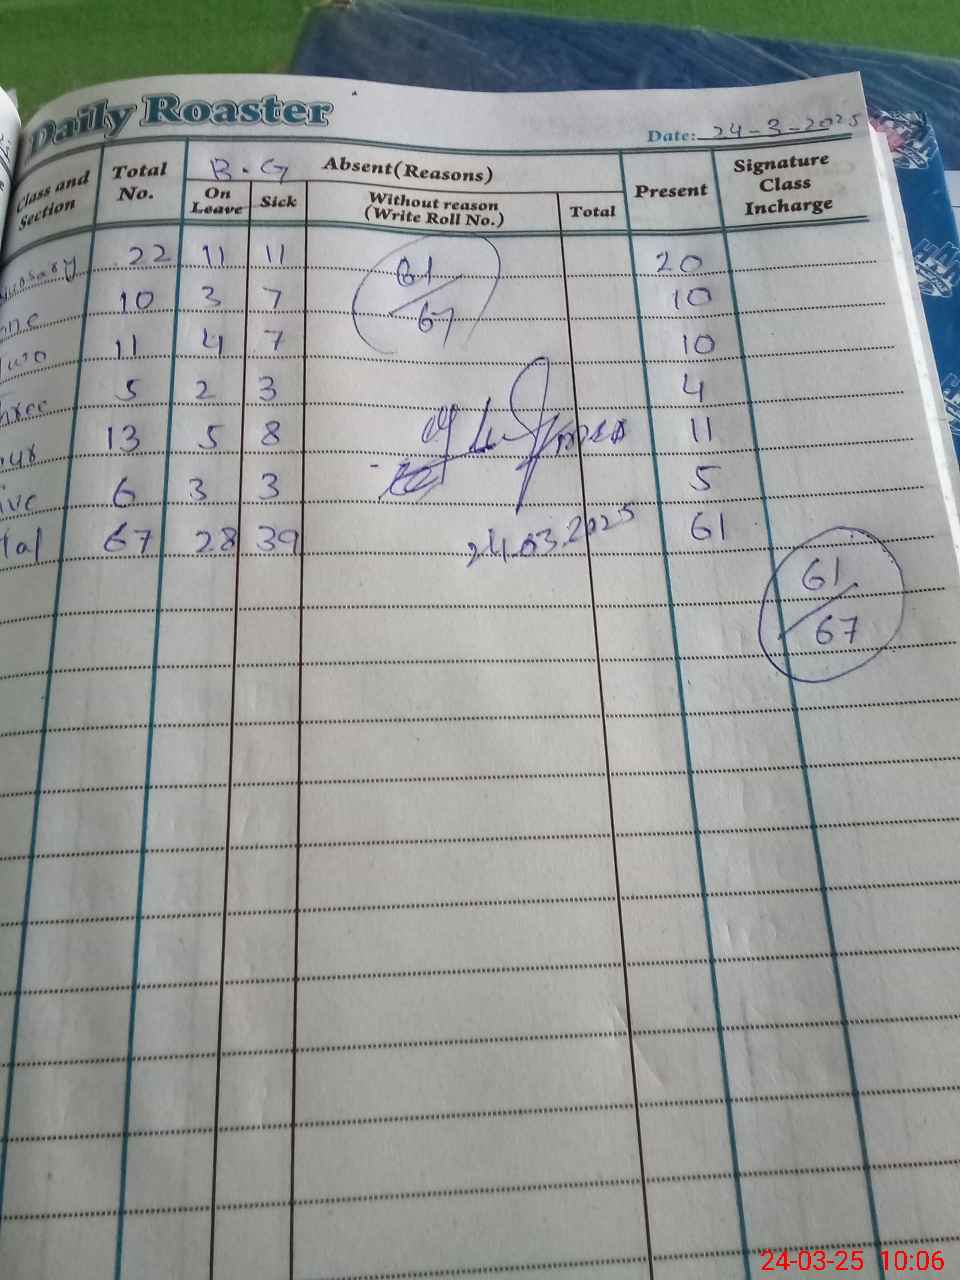 Daily Roaster
Date: 24-3-2025
Class and Section Total No. B.G Absent(Reasons) Present Signature Class Incharge
On Leave Sick Without reason (Write Roll No.) Total
22 11 11 20
10 3 7 10
11 4 7 10
5 2 3 4
13 5 8 11
6 3 3 5
tal 67 28 39 61
61
67
24.03.2025
61
67
24-03-25 10:06